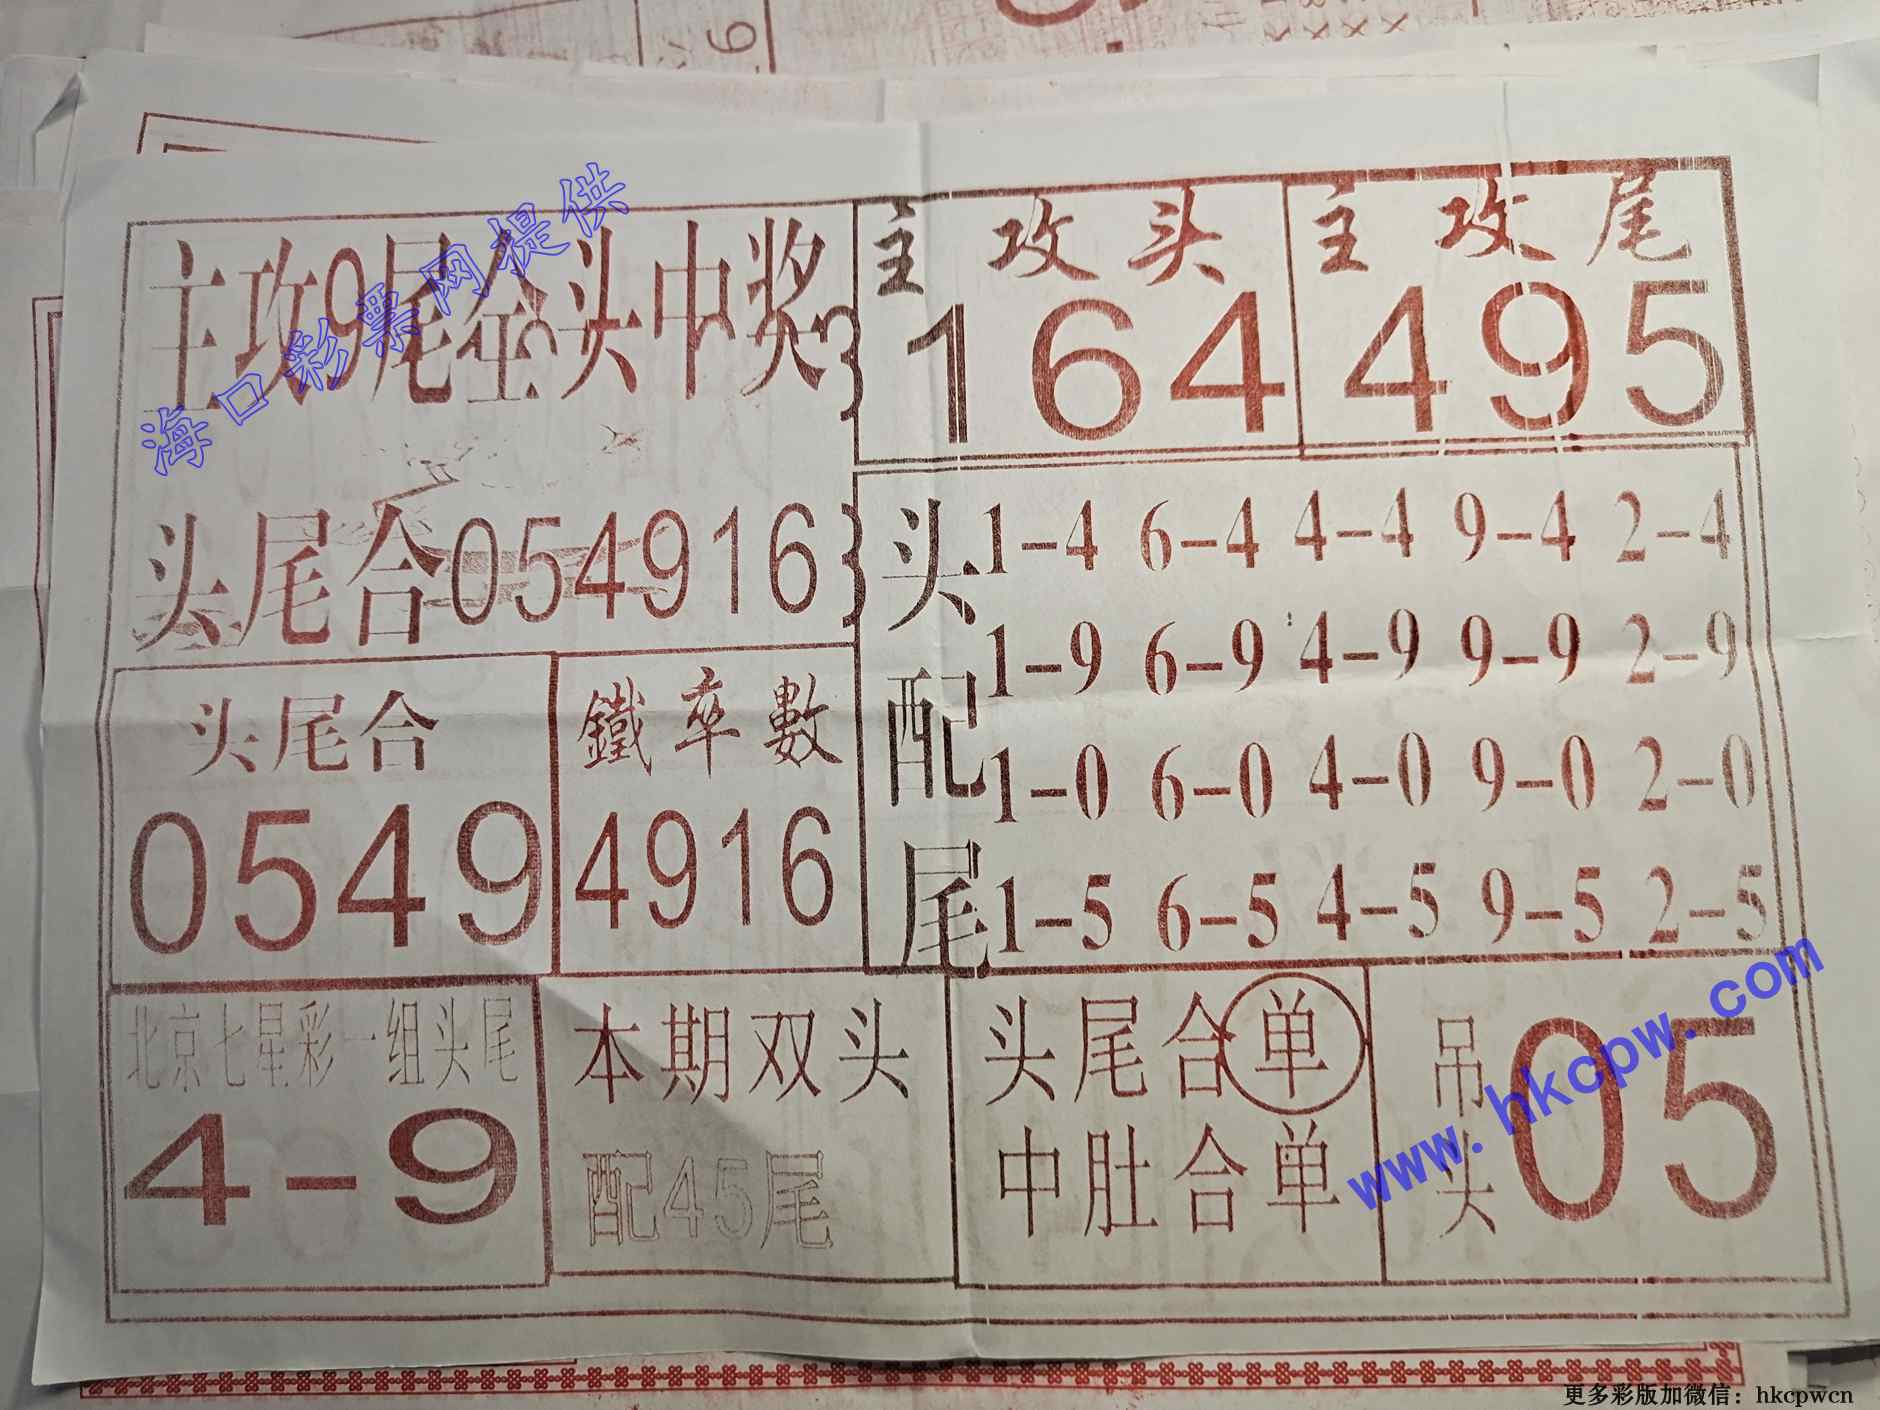 主攻9尾全头中奖
海口彩票网提供
头尾合054916
主攻头
164
主攻尾
495
头配尾
1-4 6-4 4-4 9-4 2-4
1-9 6-9 4-9 9-9 2-9
1-0 6-0 4-0 9-0 2-0
1-5 6-5 4-5 9-5 2-5
头尾合
0549
鐵率數
4916
北京七星彩一组头尾
4-9
本期双头
配45尾
头尾合单
中肚合单
吊头
05
www.hkcpw.com
更多彩版加微信：hkcpwcn